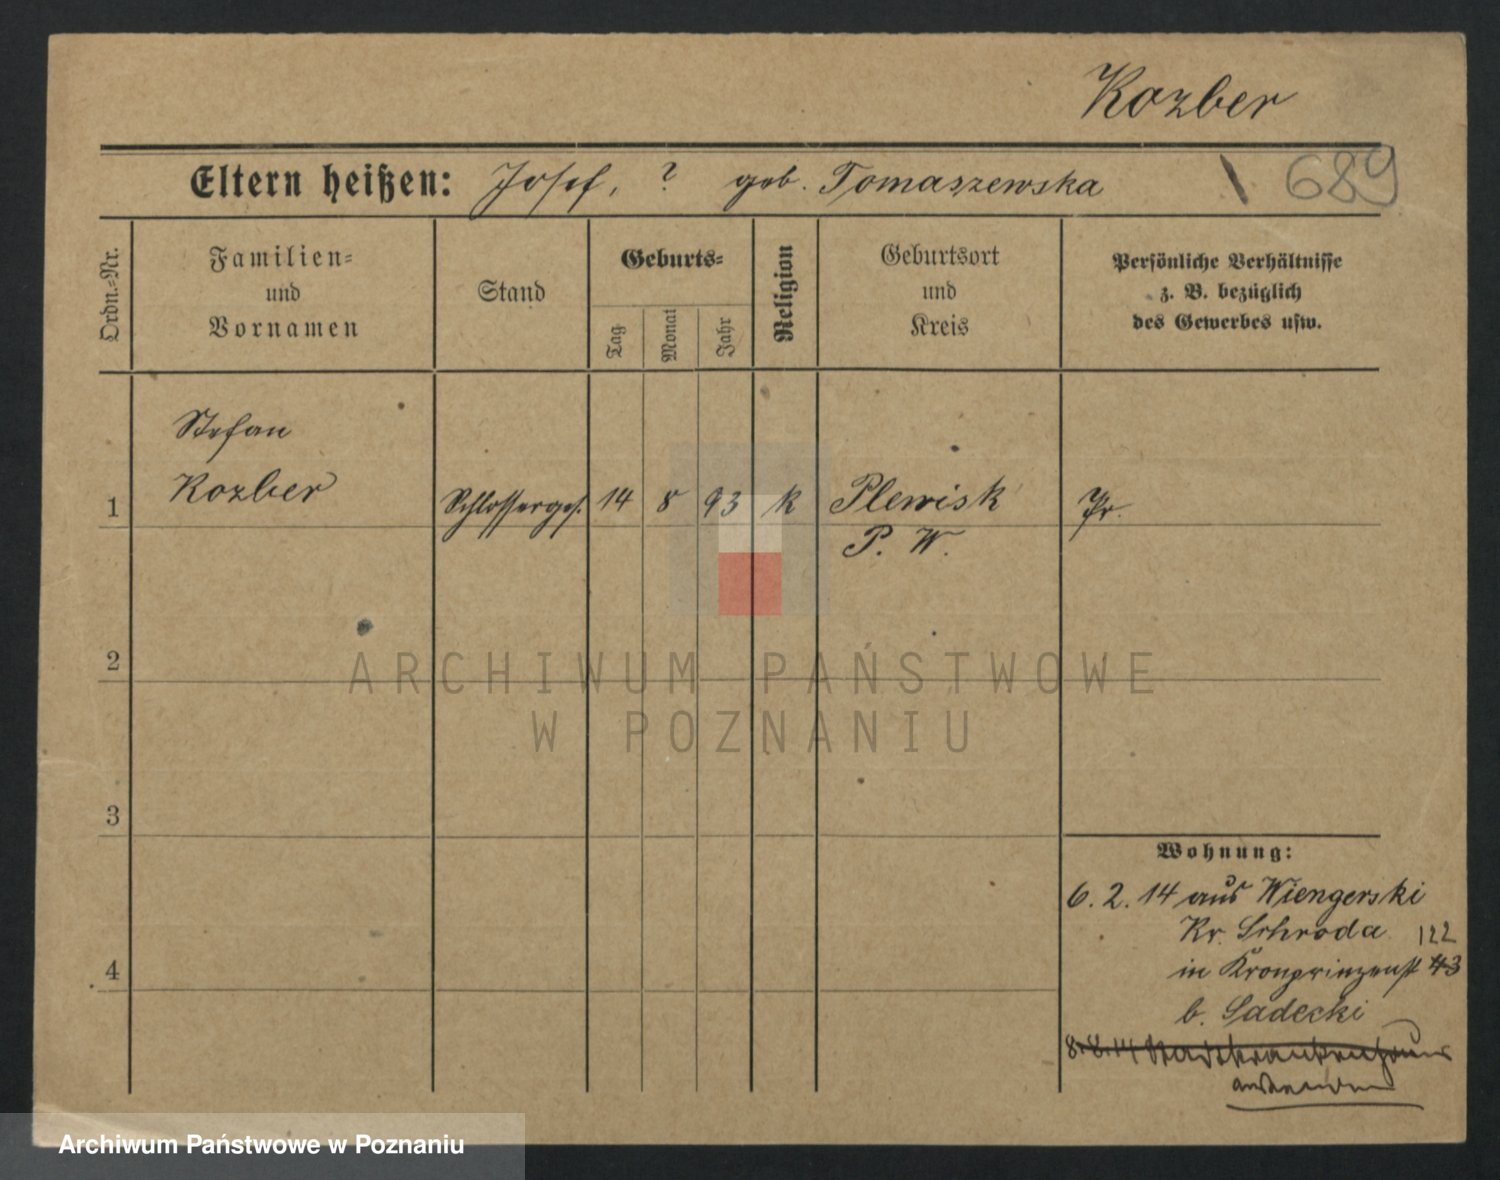 Kozber
Eltern heißen: Josef, ? geb. Tomaszewska \ 689
Ordn.-Nr.
Familien-
und
Vornamen
Stand
Geburts-
Tag
Monat
Jahr
Religion
Geburtsort
und
Kreis
Persönliche Verhältnisse
z. B. bezüglich
des Gewerbes usw.
Stefan
1 Kozber Schlosserges. 14 8 93 k Plewisk Pr.
P. W.
2
3
4
Wohnung:
6.2.14 aus Wiengerski
Kr. Schroda 122
in Kronprinzenst 43
b. Sadecki
8.8.14 Stadtkrankenhaus
ARCHIWUM PAŃSTWOWE
W POZNANIU
Archiwum Państwowe w Poznaniu